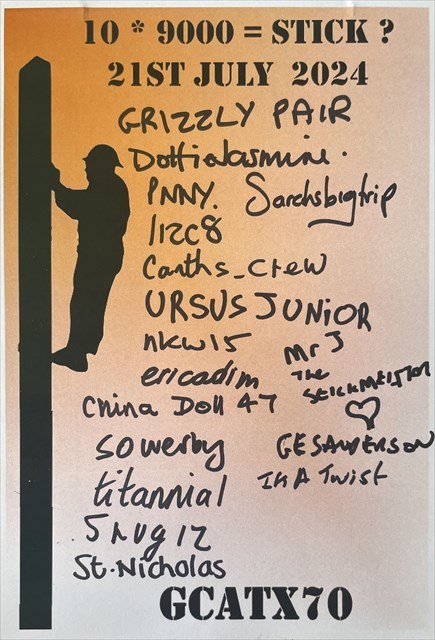 10 * 9000 = STICK ?
21ST JULY 2024
GRIZZLY PAIR
DottieJasmine.
PNNY. Sarahsbigtrip
Canths_Crew
URSUS JUNIOR
nkw15
Mr J
ericadim
THE
STICKMEISTER
China Doll 47
sowerby
GESANDERSON
titannial
In A Twist
St. Nicholas
GCATX70